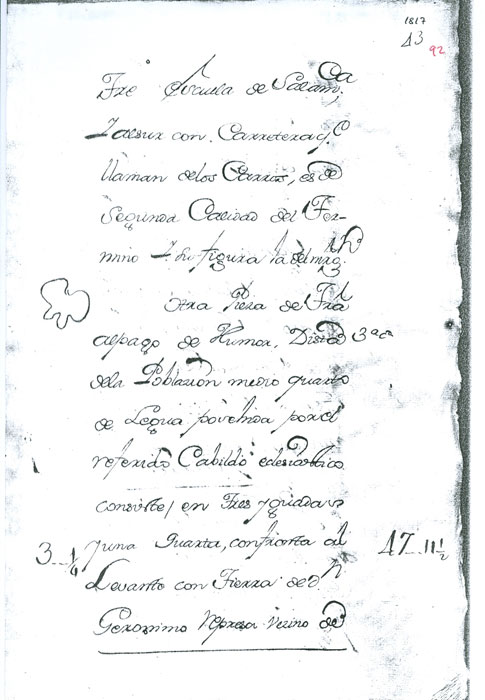 1817
43
92
Fre Escuela de Salam.ca
Y alsur con Carretera q.e
llaman delos Carros, es de
Segunda Calidad del Ter-
mino Y su figura la del mrg.n
Otra Pieza de Tra
alpago de Humor, Dista 3a
dela Poblazion medio quarto
de Legua posehida por el
referido Cabildo eclesiastico
consiste en Tres yguadas
3 1/4 y una Quarta, confronta al 47 11 1/2
Levante con Tierra de d.n
Geronimo vezino de